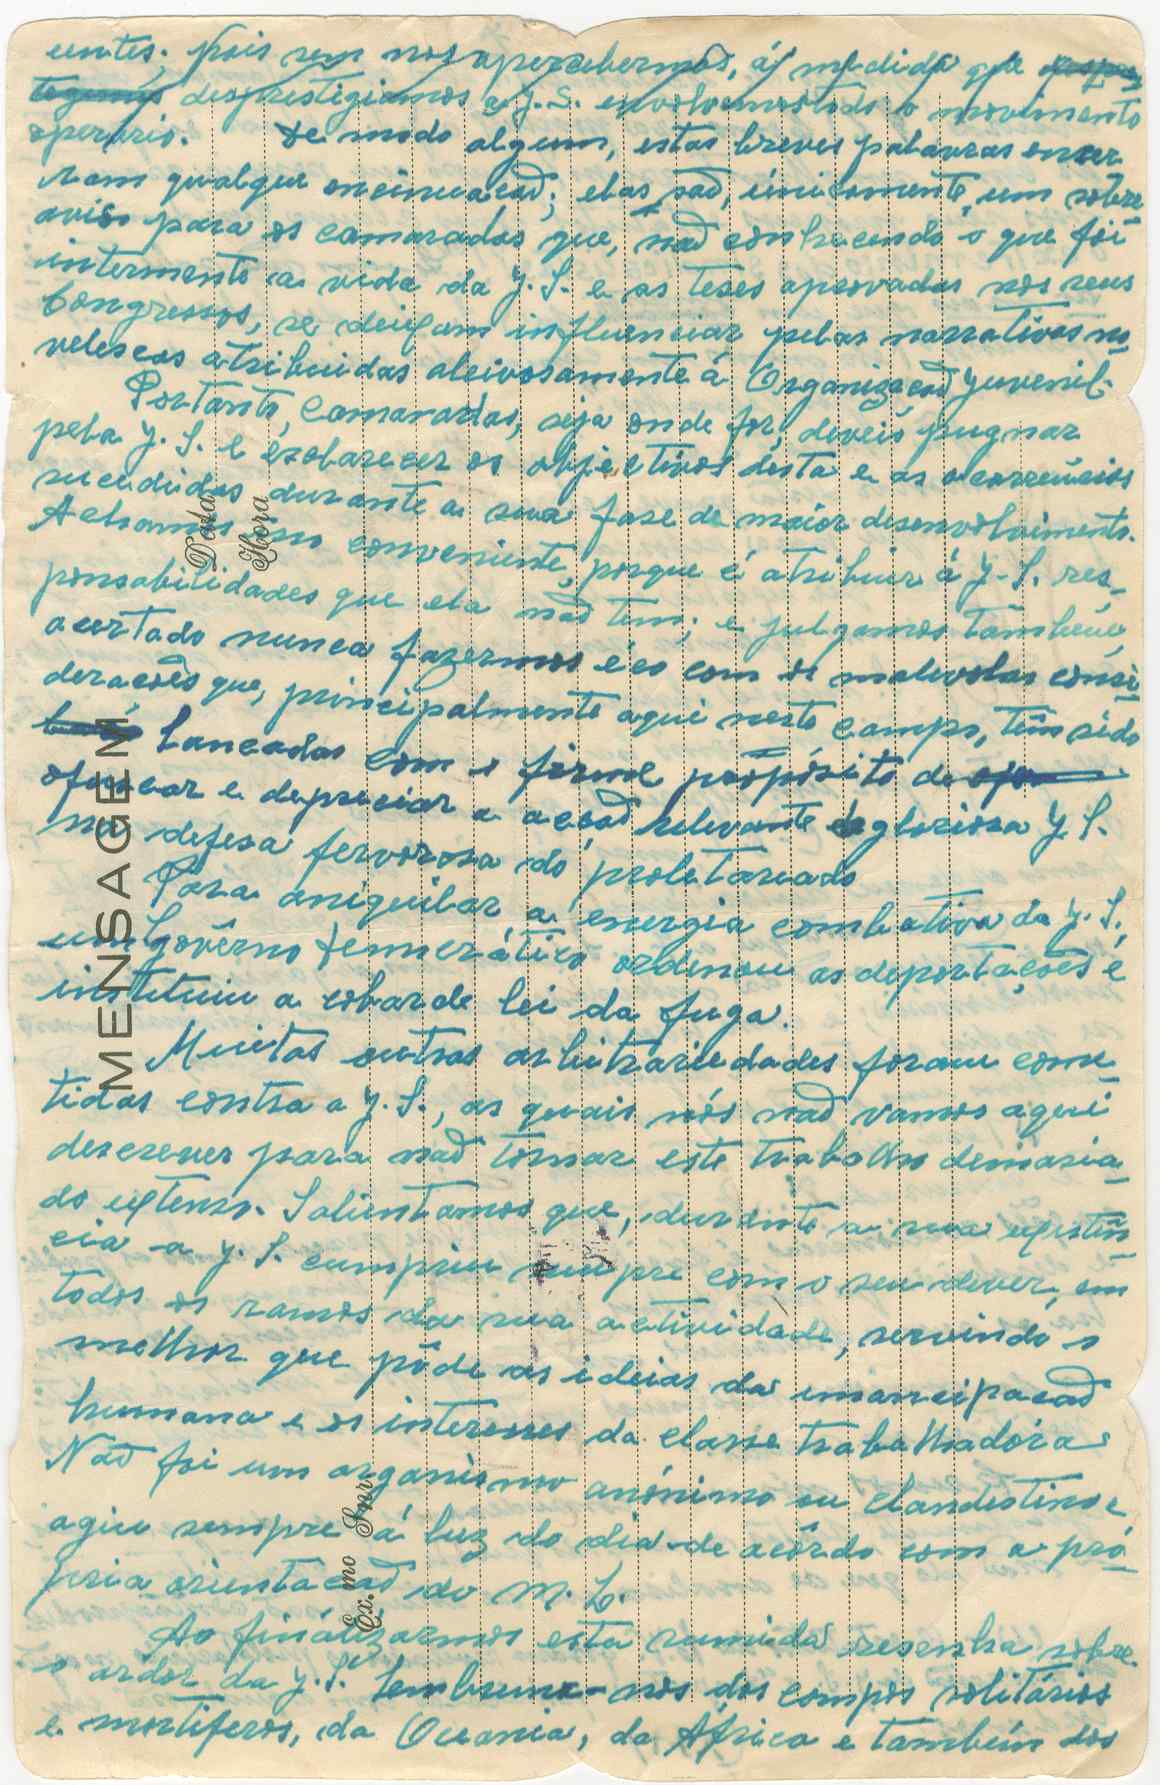 entes; pois sem nos apercebermos, á medida que
desprestigiamos a J. S. envolvemos todo o movimento
operário. De modo algum, estas breves palavras encer
ram qualquer encinuacaõ; elas saõ, únicamente, um sobre
aviso para os camaradas que, naõ conhecendo o que foi
intermente a vida da J. S. e as teses aprovadas nos seus
Congressos, se deixam influenciar pelas narrativas no-
velescas atribuidas aleivosamente á Organizacaõ Juvenil.
Portanto, camaradas, seja onde fôr, deveis pugnar
pela J. S. e esclarecer os objectivos desta e as ocorrencias
sucedidas durante a sua fase de maior desenvolvimento.
Achamos no conveniente, porque é atribuir á J. S. res-
ponsabilidades que ela naõ tem; e julgamos tâmbêm,
acertado nunca fazermos éco com as malevolas consi-
deracoẽs que, principalmente aqui neste campo, têm sido
lancadas com o firme propósito de
ofuscar e depreciar a accaõ relevante da gloriosa J. S.
na defesa fervorosa do proletariado
Para aniquilar a energia combativa da J. S.,
um Govêrno Democrático ordenou as deportaçoẽs e
instituiu a cobarde lei da fuga.
Muitas outras arbitrariedades foram come-
tidas contra a J. S., as quais nós naõ vamos aqui
descrever para naõ tornar este trabalho demasia-
do extenso. Salientamos que, durante a sua existên-
cia a J. S. cumpriu sempre com o seu dever, em
todos os ramos da sua actividade, servindo o
melhor que pôde as ideias da emancipacaõ
humana e os interesses da classe trabalhadóra.
Naõ foi um organismo anónimo ou clandestino e
agiu sempre á luz do dia de acôrdo com a pró-
pria orientacaõ do M. L.
Ao finalizarmos esta sumida resenha sobre
o ardor da J. S. lembramo-nos dos campos solitários
e mortiferos, da Oceania, da África e também dos
MENSAGEM
Data
Hora
Ex.mo Snr.